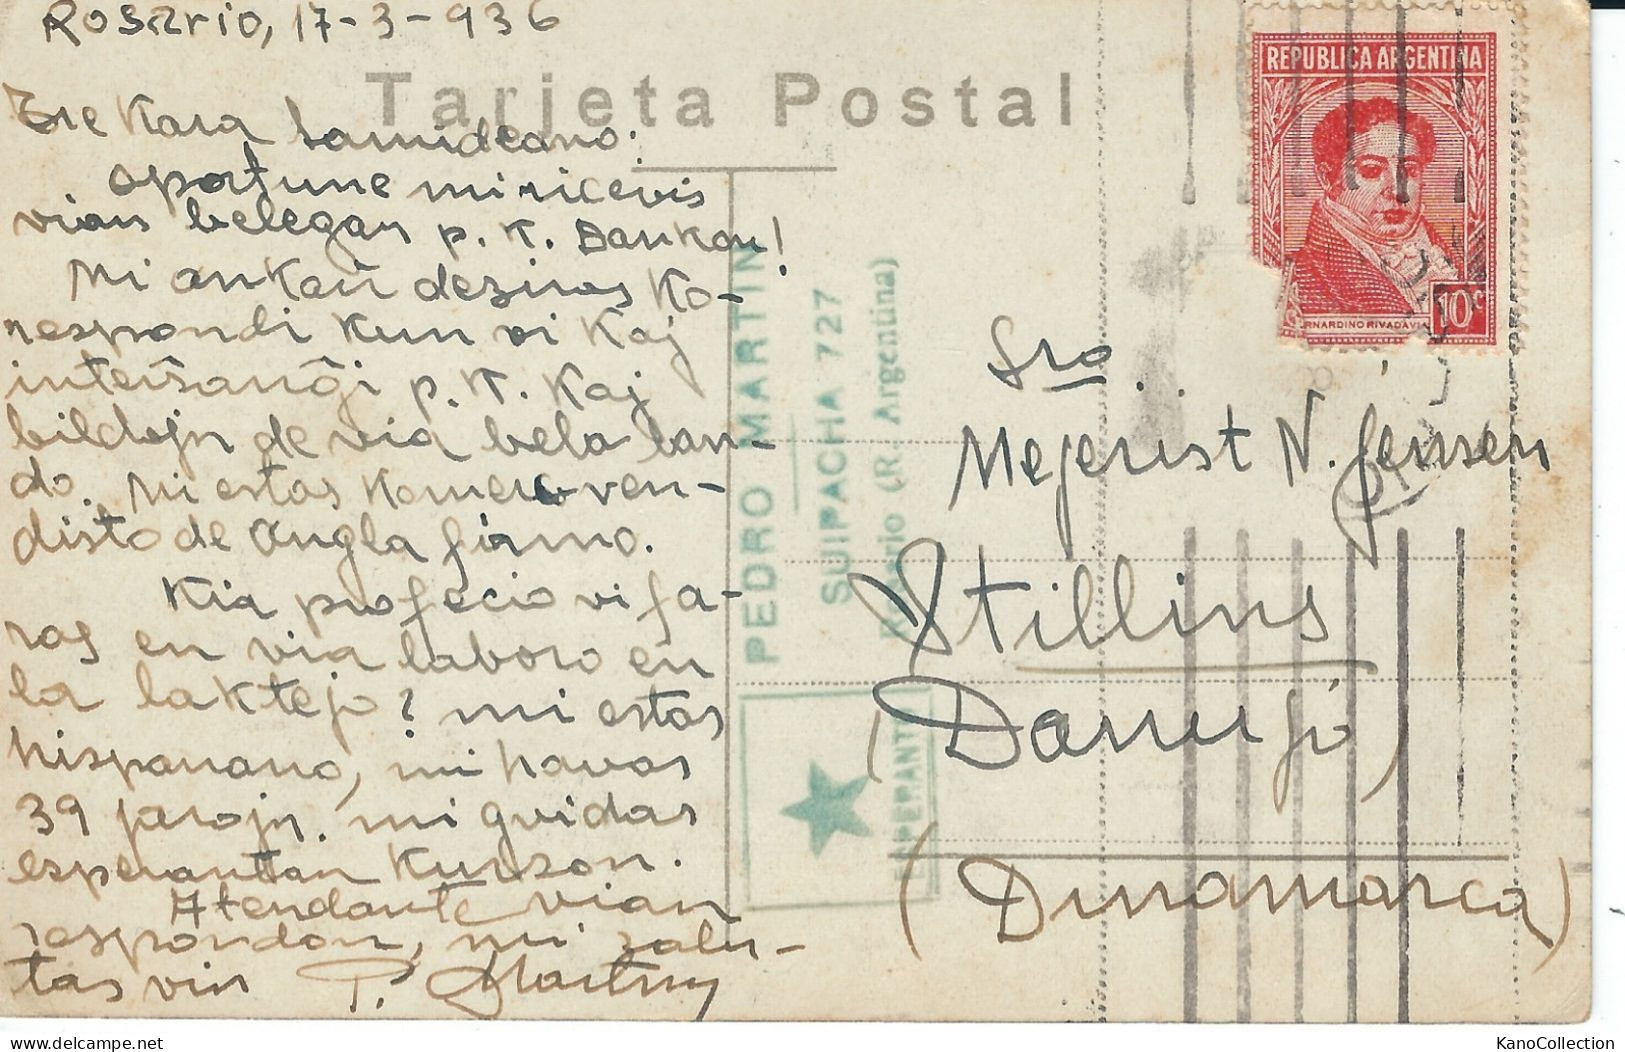 Rosario, 17-3-936
Tarjeta Postal
Tre Kara Samideano:
oportune mi ricevis
vian belegan p. K. Dankon!
Mi ankaŭ deziras ko-
respondi kun vi kaj
interŝanĝi p. K. Kaj
bildojn de via bela lan-
do. Mi estas komerc ven-
disto de Angla firmo.
Kia profecio vi fa-
ras en via laboro en
la laktejo? mi estas
hispanano, mi havas
39 jarojn. mi gvidas
esperantan kurson.
Atendante vian
respondon, mi salu-
tas vin P. Martin
PEDRO MARTIN
SUIPACHA 727
Rosario (R. Argentina)
ESPERANTO
REPUBLICA ARGENTINA
RNARDINO RIVADAVIA
10c
Sro
Mejerist N. Jensen
Stillins
(Danujo)
(Dinamarca)
KanoCollection